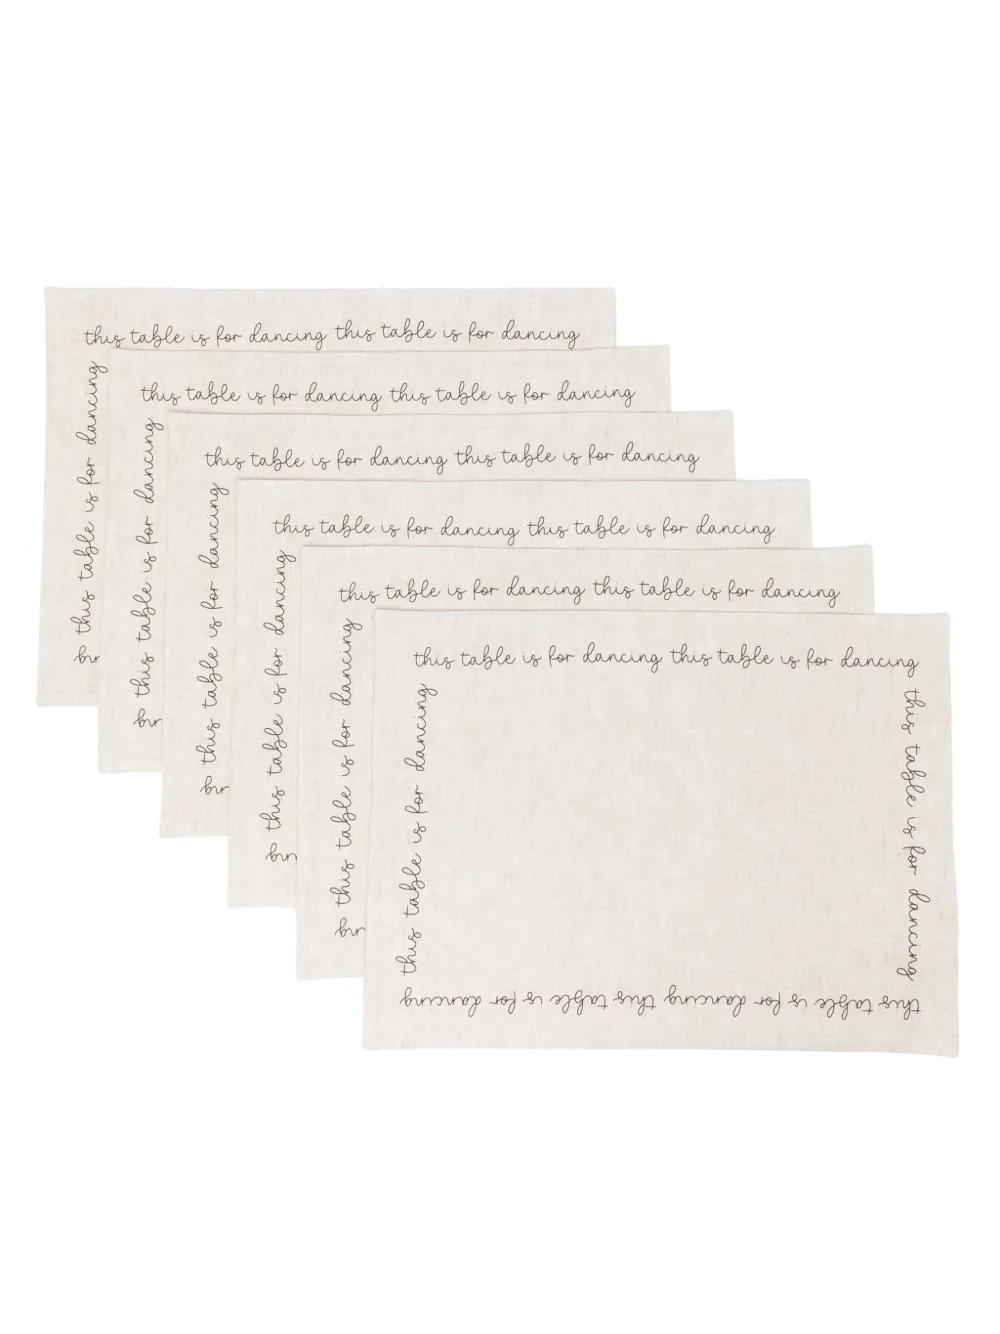 this table is for dancing this table is for dancing
this table is for dancing
ing
this table is for dancing this table is for dancing
this table is for dancing
ing
this table is for dancing this table is for dancing
this table is for dancing
ing
this table is for dancing this table is for dancing
this table is for dancing
ing
this table is for dancing this table is for dancing
this table is for dancing
ing
this table is for dancing this table is for dancing
this table is for dancing
this table is for dancing this table is for dancing
this table is for dancing